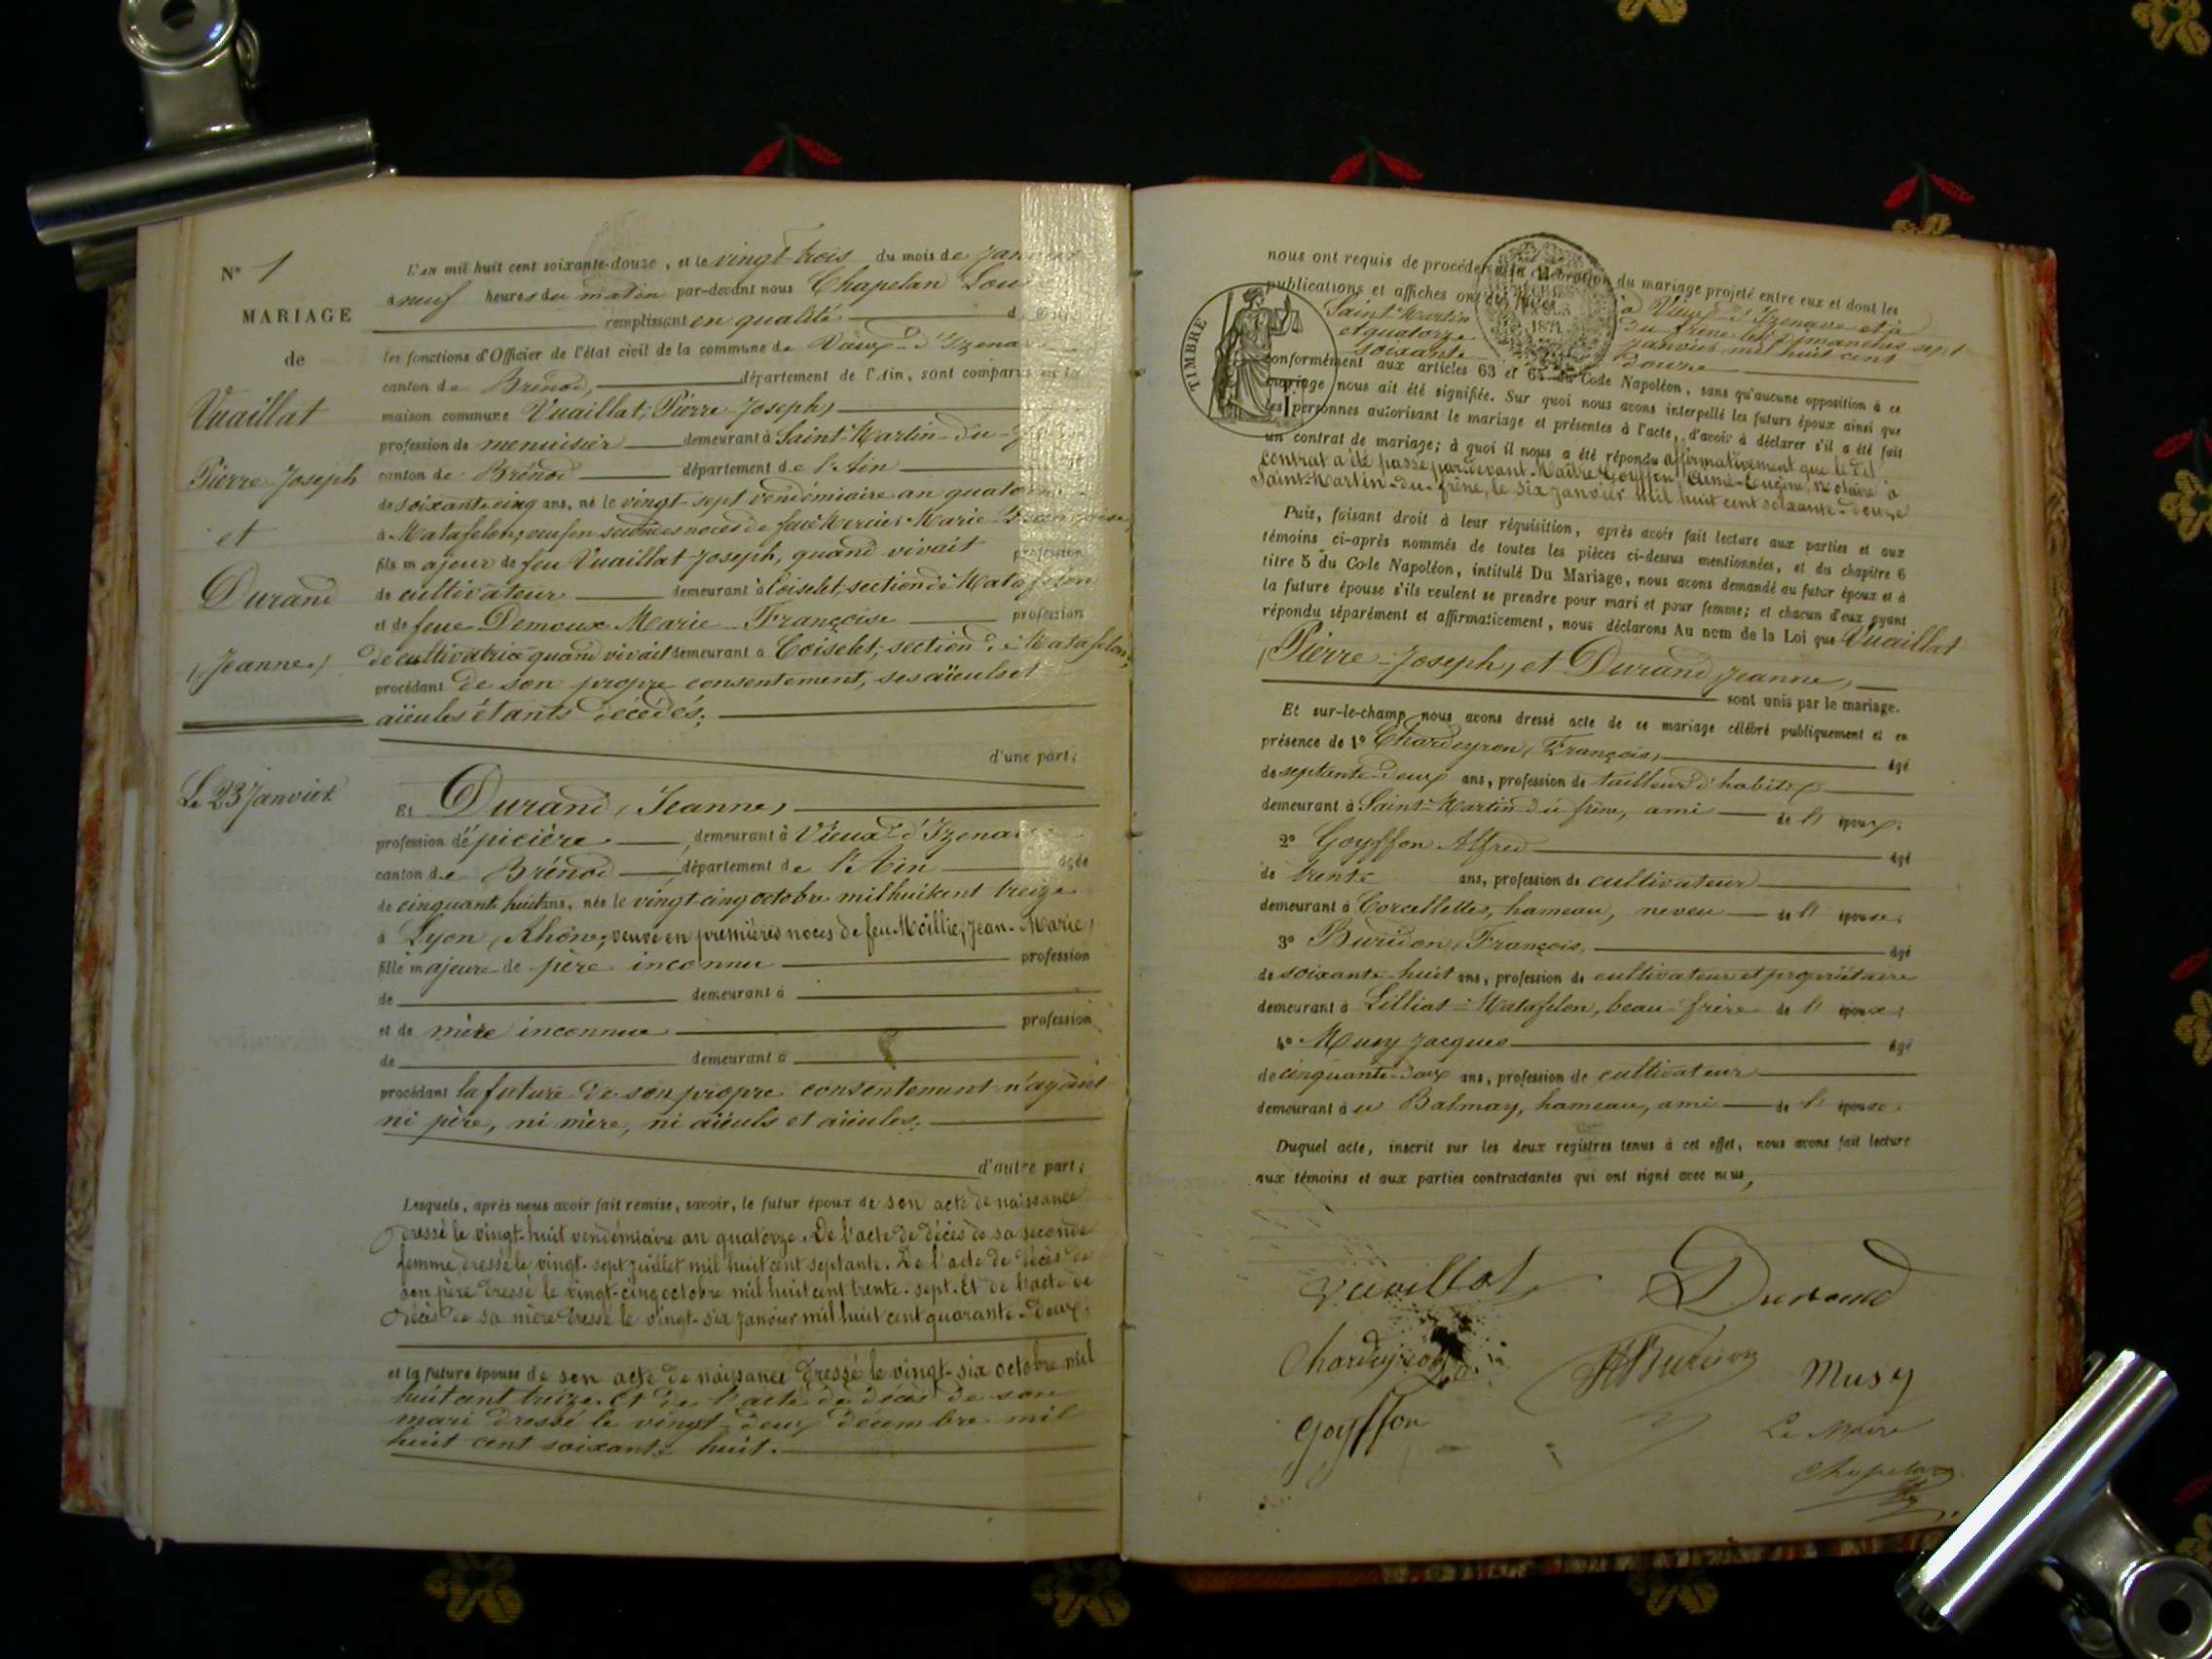 N° 1
MARIAGE
de
Vuaillat
Pierre Joseph
et
Durand
(Jeanne)
Le 23 Janvier
L'an mil huit cent soixante-douze, et le vingt-trois du mois de Janvier
à neuf heures du matin par-devant nous Chapelan
remplissant en qualité
les fonctions d'Officier de l'état civil de la commune de Vieux-d'Izenave
canton de Brénod, département de l'Ain, sont comparus en la
maison commune Vuaillat, Pierre Joseph,
profession de menuisier demeurant à Saint-Martin-du-
canton de Brénod département de l'Ain
de soixante cinq ans, né le vingt-sept vendémiaire an quatorze
à Matafelon, veuf en secondes noces de feue Mercier Marie Françoise,
fils majeur de feu Vuaillat Joseph, quand vivait profession
de cultivateur demeurant à Coiselet, section de Matafelon
et de feue Demoux Marie-Françoise profession
de cultivatrice quand vivait demeurant à Coiselet, section de Matafelon,
procédant de son propre consentement, ses aïeuls et
aïeules étants décédés;
d'une part;
Et Durand, Jeanne,
profession d'épicière, demeurant à Vieux d'Izenave
canton de Brénod département de l'Ain âgée
de cinquante huit ans, née le vingt-cinq octobre mil huit cent treize
à Lyon, Rhône, veuve en premières noces de feu Moillie, Jean-Marie,
fille majeure de père inconnu profession
de demeurant à
et de mère inconnue profession
de demeurant à
procédant la future de son propre consentement n'ayant
ni père, ni mère, ni aïeuls et aïeules;
d'autre part;
Lesquels, après nous avoir fait remise, savoir, le futur époux de son acte de naissance
dressé le vingt-huit vendémiaire an quatorze. De l'acte de décès de sa seconde
femme, dressé le vingt-sept juillet mil huit cent septante. De l'acte de décès de
son père dressé le vingt-cinq octobre mil huit cent trente-sept. Et de l'acte de
décès de sa mère dressé le vingt-six janvier mil huit cent quarante-deux;
et la future épouse de son acte de naissance dressé le vingt-six octobre mil
huit cent treize. Et de l'acte de décès de son
mari dressé le vingt-deux décembre mil
huit cent soixante huit.
nous ont requis de procéder à la célébration du mariage projeté entre eux et dont les
publications et affiches ont été faites à Vieux-d'Izenave et à
TIMBRE
Saint-Martin du frêne les dimanches sept
et quatorze janvier mil huit cent
soixante douze
conformément aux articles 63 et 64 du Code Napoléon, sans qu'aucune opposition à ce
mariage nous ait été signifiée. Sur quoi nous avons interpellé les futurs époux ainsi que
les personnes autorisant le mariage et présentes à l'acte, d'avoir à déclarer s'il a été fait
un contrat de mariage; à quoi il nous a été répondu affirmativement que le dit
contrat a été passé par devant Maître Goyffon, Aimé-Eugène, notaire à
Saint-Martin-du-frêne, le six janvier mil huit cent soixante-douze
Puis, faisant droit à leur réquisition, après avoir fait lecture aux parties et aux
témoins ci-après nommés de toutes les pièces ci-dessus mentionnées, et du chapitre 6
titre 5 du Code Napoléon, intitulé Du Mariage, nous avons demandé au futur époux et à
la future épouse s'ils veulent se prendre pour mari et pour femme; et chacun d'eux ayant
répondu séparément et affirmativement, nous déclarons Au nom de la Loi que Vuaillat
Pierre-Joseph, et Durand Jeanne,
sont unis par le mariage.
Et sur-le-champ nous avons dressé acte de ce mariage célébré publiquement et en
présence de 1° Chardeyron, François, âgé
de septante-deux ans, profession de tailleur d'habits
demeurant à Saint-Martin-du-frêne, ami de l' époux;
2° Goyffon Alfred âgé
de trente ans, profession de cultivateur
demeurant à Corcellettes, hameau, neveu de l' épouse;
3° Buridon, François, âgé
de soixante-huit ans, profession de cultivateur et propriétaire
demeurant à Lilliat-Matafelon, beau-frère de l' époux;
4° Musy Jacques âgé
de cinquante-deux ans, profession de cultivateur
demeurant à Balmay, hameau, ami de l' épouse.
Duquel acte, inscrit sur les deux registres tenus à cet effet, nous avons fait lecture
aux témoins et aux parties contractantes qui ont signé avec nous,
Vuaillat Durand
Chardeyron Buridon Musy
Goyffon Le Maire
Chapelan